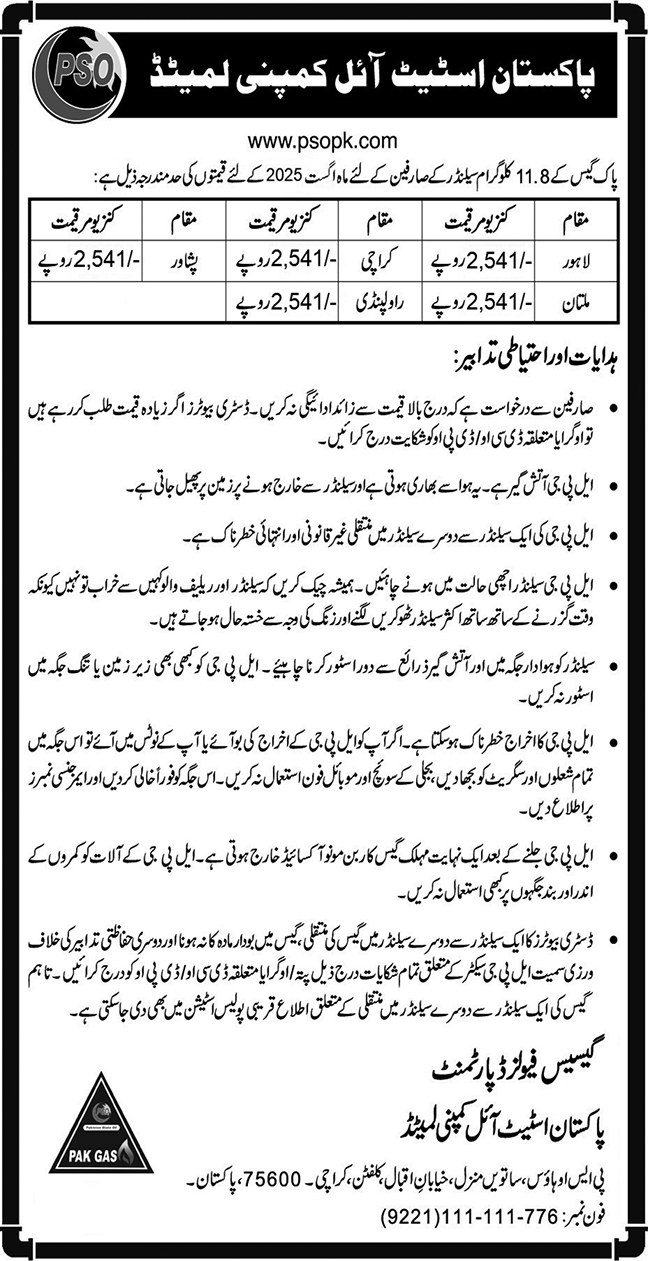 PSO
پاکستان اسٹیٹ آئل کمپنی لمیٹڈ
www.psopk.com
پاک گیس کے 11.8 کلوگرام سیلنڈر کے صارفین کے لئے ماہ اگست 2025 کے لئے قیمتوں کی حد مندرجہ ذیل ہے:
مقام کنزیومر قیمت مقام کنزیومر قیمت مقام کنزیومر قیمت
لاہور 2,541/- روپے کراچی 2,541/- روپے پشاور 2,541/- روپے
ملتان 2,541/- روپے راولپنڈی 2,541/- روپے
ہدایات اور احتیاطی تدابیر:
• صارفین سے درخواست ہے کہ درج بالا قیمت سے زائد ادائیگی نہ کریں۔ ڈسٹری بیوٹرز اگر زیادہ قیمت طلب کر رہے ہیں
تو اوگرا یا متعلقہ ڈی سی او/ ڈی پی او کو شکایت درج کرائیں۔
• ایل پی جی آتش گیر ہے۔ یہ ہوا سے بھاری ہوتی ہے اور سیلنڈر سے خارج ہونے پر زمین پر پھیل جاتی ہے۔
• ایل پی جی کی ایک سیلنڈر سے دوسرے سیلنڈر میں منتقلی غیر قانونی اور انتہائی خطرناک ہے۔
• ایل پی جی سیلنڈر اچھی حالت میں ہونے چاہئیں۔ ہمیشہ چیک کریں کہ سیلنڈر اور ریلیف والو کہیں سے خراب تو نہیں کیونکہ
وقت گزرنے کے ساتھ ساتھ اکثر سیلنڈر ٹھوکریں لگنے اور زنگ کی وجہ سے خستہ حال ہو جاتے ہیں۔
• سیلنڈر کو ہوادار جگہ میں اور آتش گیر ذرائع سے دور اسٹور کرنا چاہیئے۔ ایل پی جی کو کبھی بھی زیر زمین یا تنگ جگہ میں
اسٹور نہ کریں۔
• ایل پی جی کا اخراج خطرناک ہو سکتا ہے۔ اگر آپ کو ایل پی جی کے اخراج کی بو آئے یا آپ کے نوٹس میں آئے تو اس جگہ میں
تمام شعلوں اور سگریٹ کو بجھا دیں، بجلی کے سوئچ اور موبائل فون استعمال نہ کریں۔ اس جگہ کو فوراً خالی کر دیں اور ایمرجنسی نمبرز
پر اطلاع دیں۔
• ایل پی جی جلنے کے بعد ایک نہایت مہلک گیس کاربن مونو آکسائیڈ خارج ہوتی ہے۔ ایل پی جی کے آلات کو کمروں کے
اندر اور بند جگہوں پر کبھی استعمال نہ کریں۔
• ڈسٹری بیوٹرز کا ایک سیلنڈر سے دوسرے سیلنڈر میں گیس کی منتقلی، گیس میں بودار مادہ کا نہ ہونا اور دوسری حفاظتی تدابیر کی خلاف
ورزی سمیت ایل پی جی سیکٹر کے متعلق تمام شکایات درج ذیل پتہ/ اوگرا یا متعلقہ ڈی سی او/ ڈی پی او کو درج کرائیں۔ تاہم
گیس کی ایک سیلنڈر سے دوسرے سیلنڈر میں منتقلی کے متعلق اطلاع قریبی پولیس اسٹیشن میں بھی دی جا سکتی ہے۔
گیسیس فیولز ڈپارٹمنٹ
پاکستان اسٹیٹ آئل کمپنی لمیٹڈ
پی ایس او ہاؤس، ساتویں منزل، خیابان اقبال، کلفٹن، کراچی۔ 75600، پاکستان۔
فون نمبر: 776-111-111(9221)
PSO
Pakistan State Oil
PAK GAS